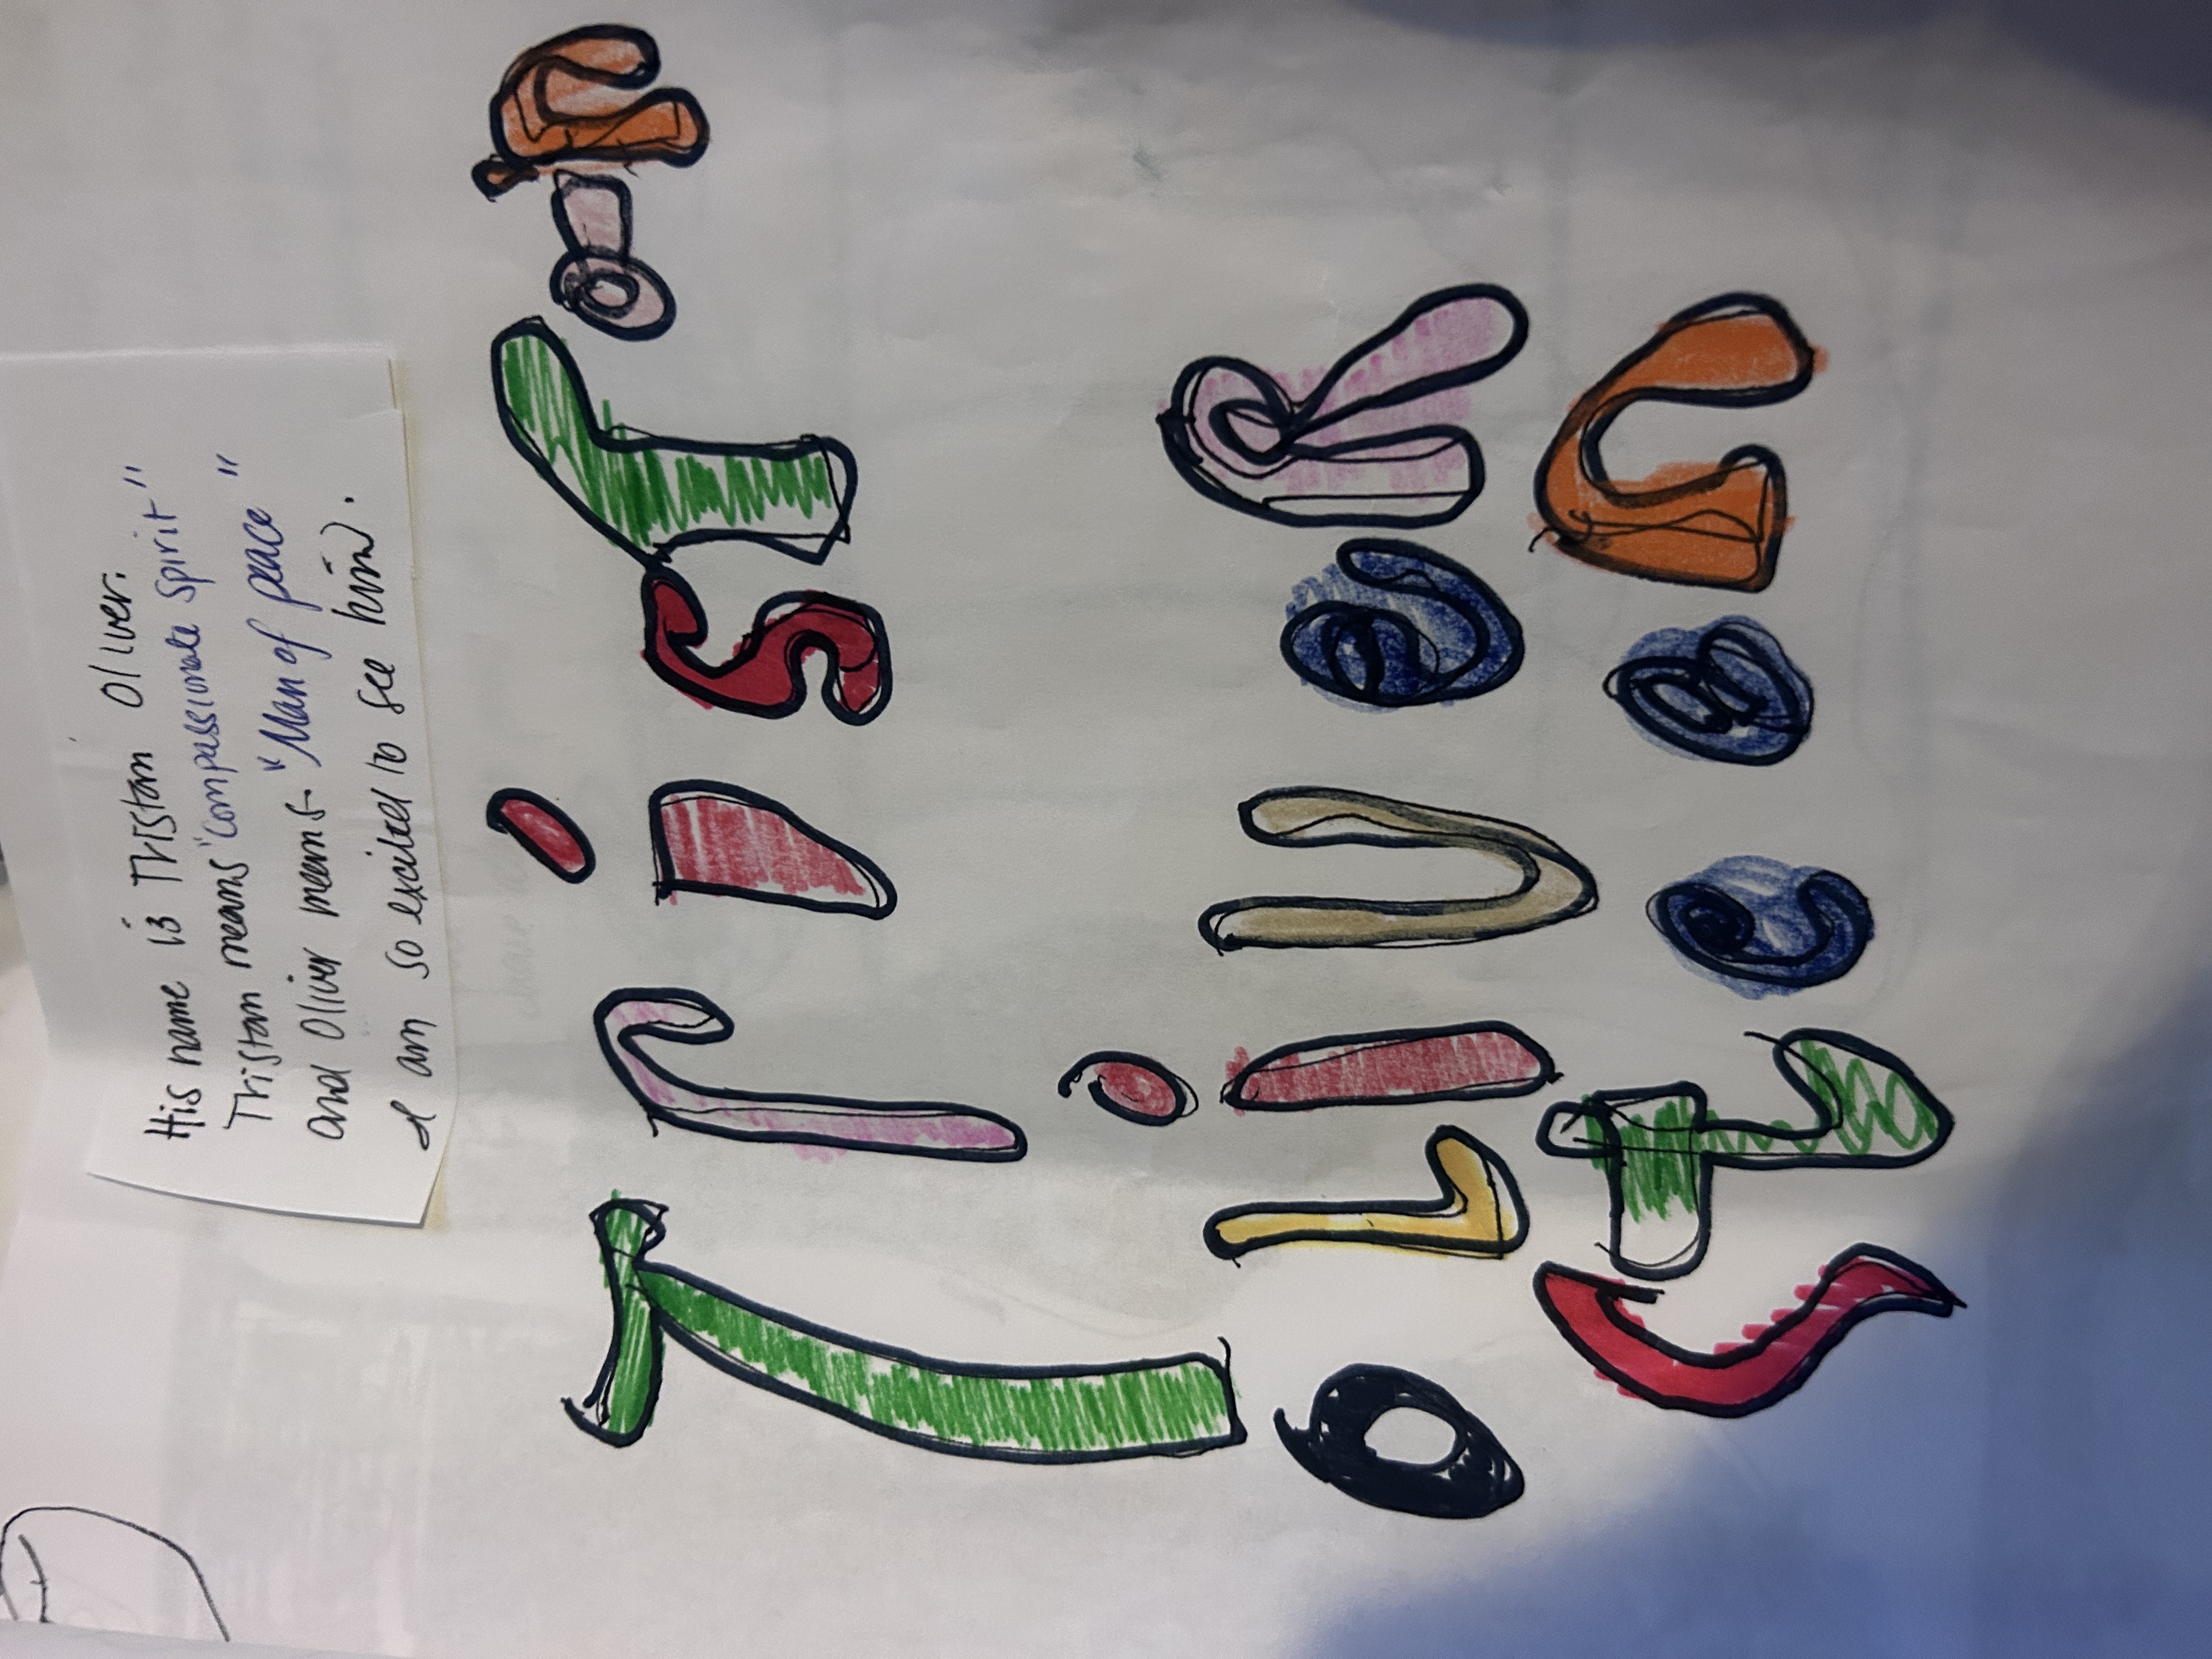 His name is Tristan Oliver.
Tristan means "Compassionate Spirit"
and Oliver means "Man of peace"
I am so excited to see him.
Tristan
OLiveR
Steen